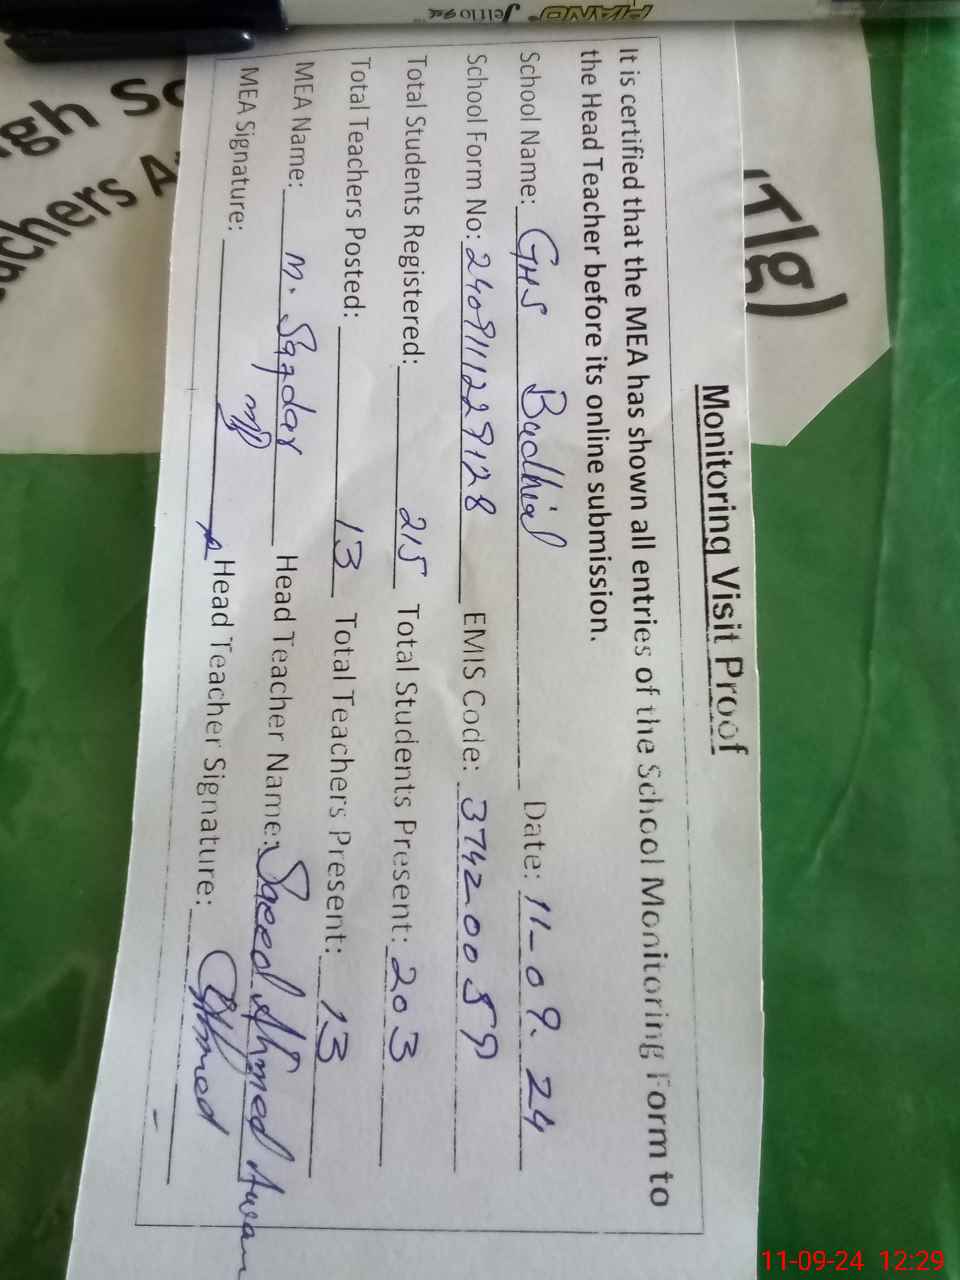 PIANO Jellogel
gh Sc
chers A
(Tlg)
Monitoring Visit Proof
It is certified that the MEA has shown all entries of the School Monitoring Form to
the Head Teacher before its online submission.
School Name: GHS Budhial Date: 11-09.24
School Form No: 2409111229128 EMIS Code: 37420059
Total Students Registered: 215 Total Students Present: 203
Total Teachers Posted: 13 Total Teachers Present: 13
MEA Name: M. Safdar Head Teacher Name: Saeed Ahmed Awan
MEA Signature: Head Teacher Signature: Ahmed
11-09-24 12:29